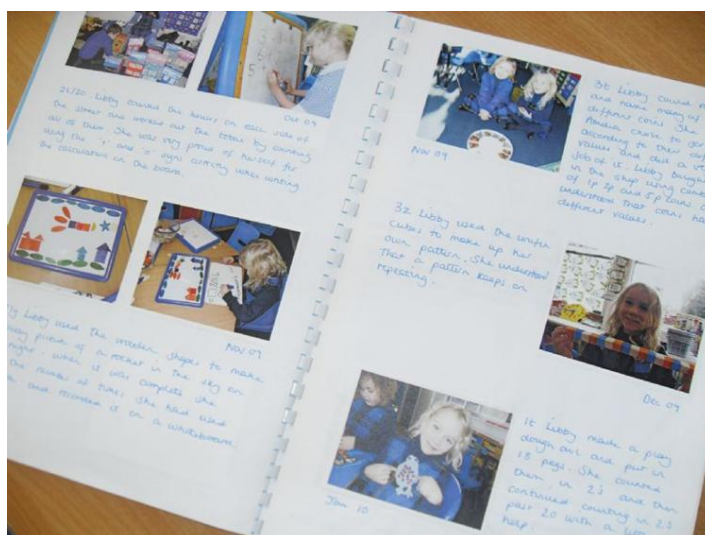 Oct 09
2i/20 Libby counted the houses on each side of
the street and worked out the total by counting
all of them. She was very proud of herself for
using the '+' and '=' signs correctly when writing
the calculation on the board.
Nov 09
Libby used the wooden shapes to make
picture of a rocket in the sky on
night. When it was complete she
the number of times she had used
and recorded it on a whiteboard.
Nov 09
3t Libby could
and name many of
different coins. She
chose to
according to their
values and did a
job of it. Libby bought
in the shop using
of 1p 2p and 5p coins.
understood that coins
different values.
3z Libby used the unifix
cubes to make up her
own pattern. She understood
that a pattern keeps on
repeating.
Dec 09
Jan 10
1t Libby made a play
dough owl and put in
18 pegs. She counted
them in 2's and then
continued counting in 2's
past 20 with a little
help.